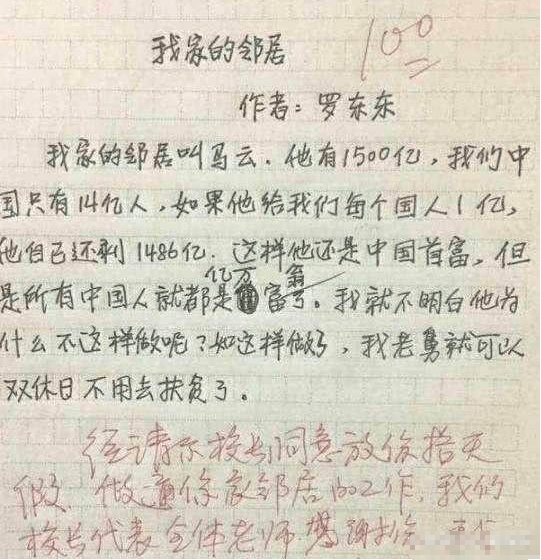 我家的邻居
100
作者：罗东东
我家的邻居叫马云．他有1500亿，我们中
国只有14亿人，如果他给我们每个国人1亿，
他自己还剩1486亿．这样他还是中国首富，但
是所有中国人就都是亿万富翁。我就不明白他为
什么不这样做呢？如这样做了，我老舅就可以
双休日不用去扶贫了。
经请示校长同意放你搭天
假．做通你家邻居的工作，我们
校长代表全体老师感谢你